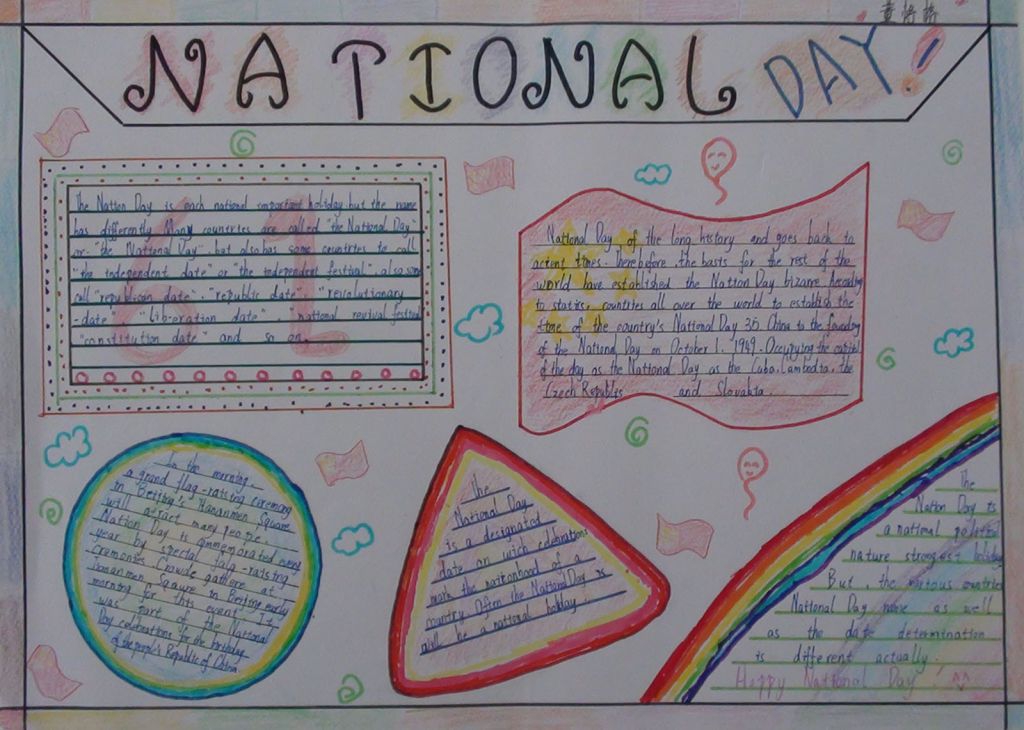 NATIONAL DAY!
The Nation Day is each national important holiday but the name
has differently. Many countries are called "the National Day"
or "the National Day". but also has some countries to call
"the independent date" or "the independent festival". also some
call "republican date". "republic date". "revolutionary
-date" "liberation date". "national revival festival
"constitution date" and so on.
61
National Day of the long history and goes back to
acient times. herebefore. the basts for the rest of the
world have established the Nation Day bizarre. According
to statics, countries all over the world to establish the
time of the country's National Day 35. China to the founding
of the National Day on October 1. 1949. Occupying the capital
of the day as the National Day as the Cuba, Cambodia, the
Czech Republis and Slovakta.
In the morning.
a grand flag-raising ciremony
in Beijing's Tiananmen Square
will atract many people.
Nation Day is commemorated every
year by special flag-raising
cremonies. Crowde gathere at
Tiananmen Square in Beijing early
morning for this event. It
was part of the National
Day celebrations for the birthday
of the people's Republic of China
The
National Day
is a designated
date on wich celebrations
mark the nationhood of a
country. Often the National Day is
will be a national holiday.
The
Nation Day is
a national political
nature strongest holiday
But, the various countries
National Day name as well
as the date determination
is different actually.
Happy National Day ! ^^